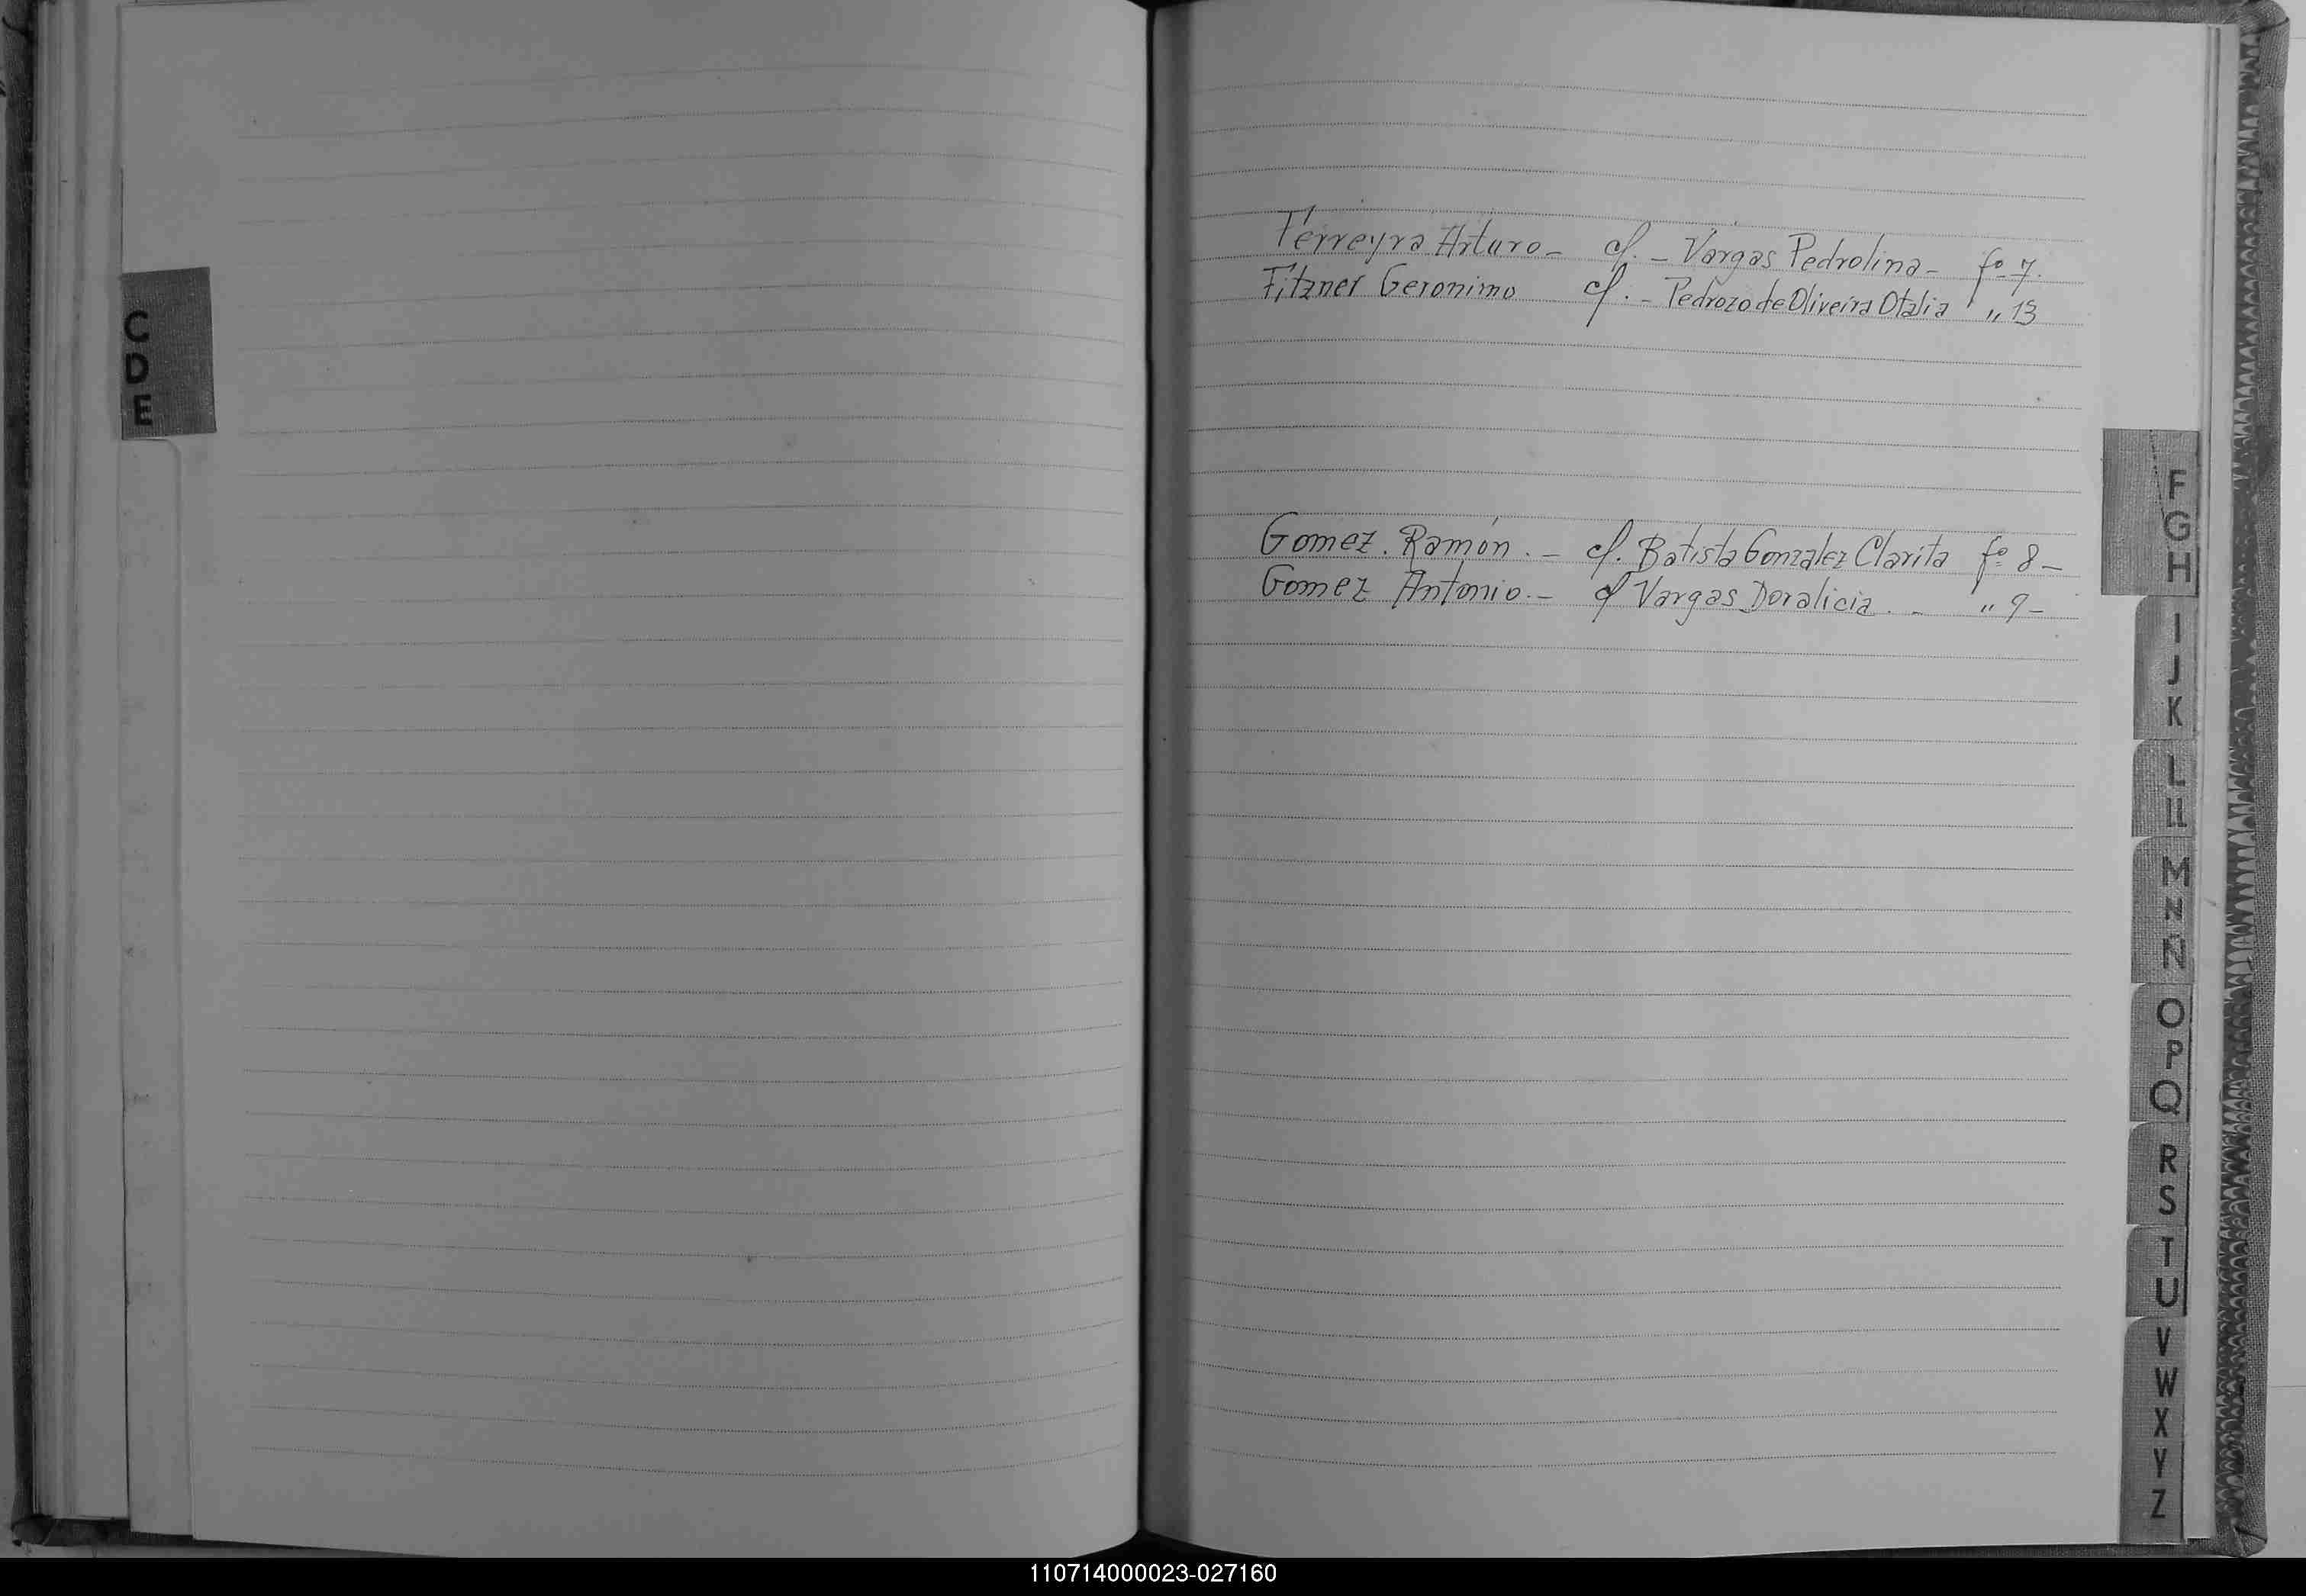 C
D
E
Ferreyra Arturo - cf. - Vargas Pedrolina - fº 7.
Fitzner Geronimo cf. - Pedrozo de Oliveira Otalia " 13
Gomez. Ramón. - cf. Batista Gonzalez Clarita fº 8 -
Gomez Antonio. - cf Vargas Doralicia. - " 9 -
F
G
H
I
J
K
L
Ll
M
N
Ñ
O
P
Q
R
S
T
U
V
W
X
Y
Z
110714000023-027160